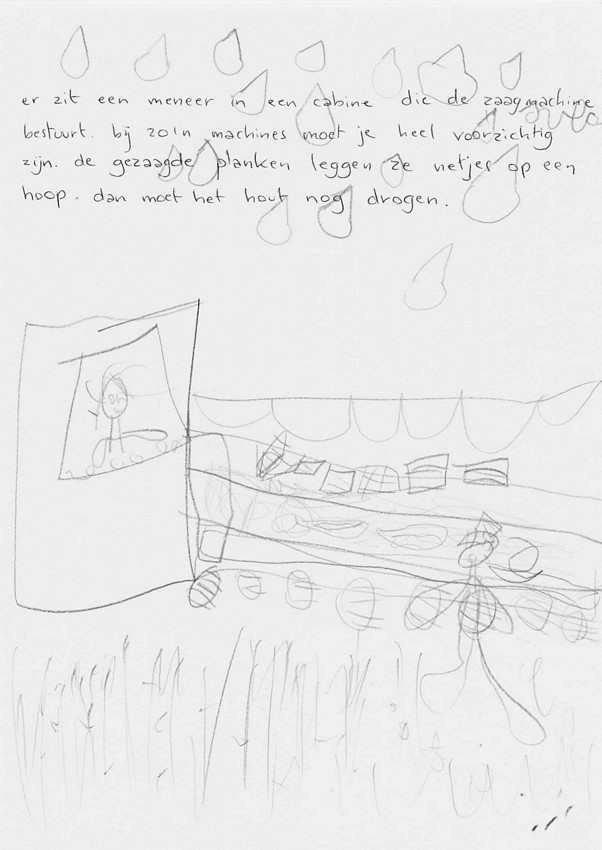 er zit een meneer in een cabine die de zaagmachine
bestuurt. bij zo'n machines moet je heel voorzichtig
zijn. de gezaagde planken leggen ze netjes op een
hoop. dan moet het hout nog drogen.